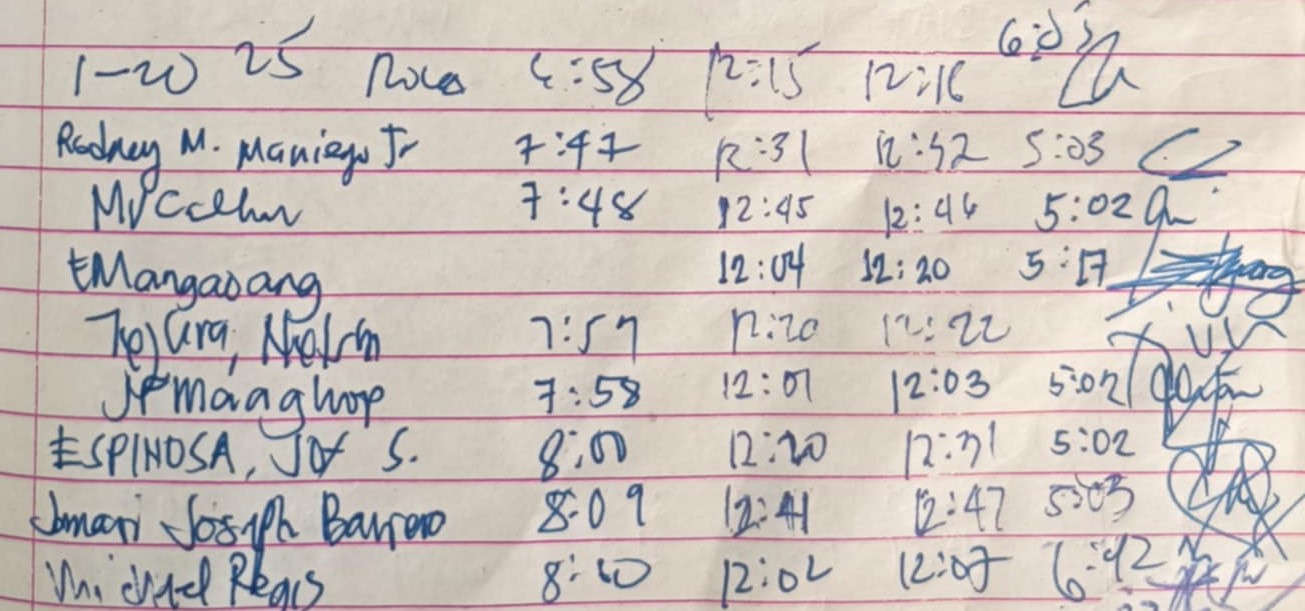 1-20 25 Roca 6:58 12:15 12:16 6:03
Rodney M. Maniego Jr 7:47 12:31 12:52 5:03
7:48 12:45 12:46 5:02
EMangaoang 12:04 12:20 5:17
Tejura, Nielsen 7:57 12:20 12:22
JP Maaghop 7:58 12:01 12:03 5:02
ESPINOSA, JOY S. 8:00 12:20 12:31 5:02
Jomari Joseph Barrero 8:09 12:41 12:47 5:03
Michael Regis 8:10 12:02 12:07 6:42